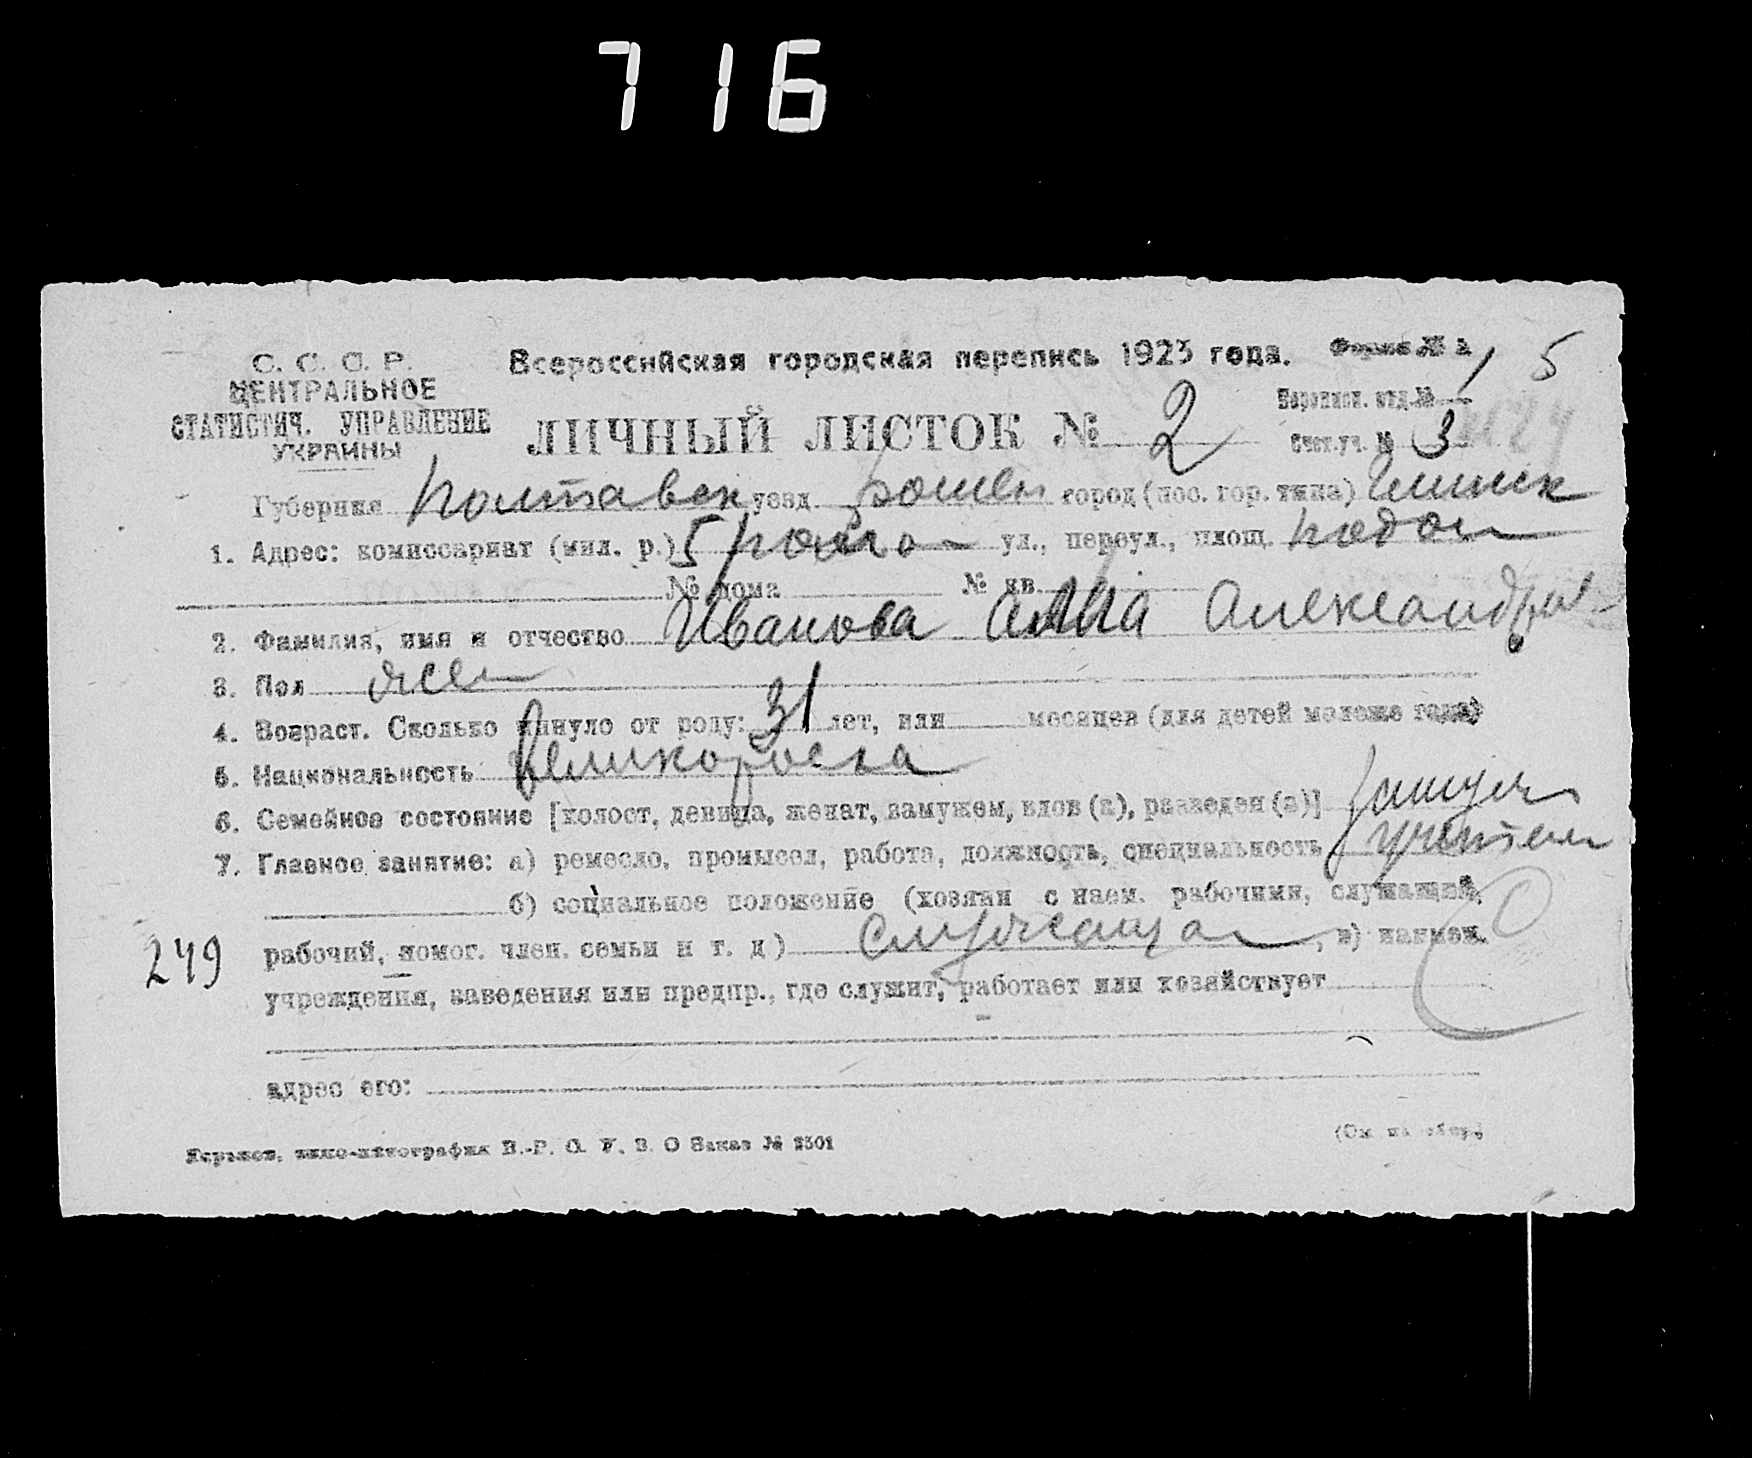 716
С. С. С. Р.
ЦЕНТРАЛЬНОЕ
СТАТИСТИЧ. УПРАВЛЕНИЕ
УКРАИНЫ
Всероссийская городская перепись 1923 года.
Форма № 2
1 5
ЛИЧНЫЙ ЛИСТОК № 2
Переписн. отд. №
Счет. уч. № 3
Губерния Полтавск уезд Ромен город (пос. гор. типа) Глинск
1. Адрес: комиссариат (мил. р.) 5 ул., переул., площ. Подол
№ дома № кв.
2. Фамилия, имя и отчество Иванова Анна Александр
3. Пол жен
4. Возраст. Сколько минуло от роду: 31 лет, или месяцев (для детей моложе года)
5. Национальность Великоросска
6. Семейное состояние [холост, девица, женат, замужем, вдов (а), разведен (а)] замужем
7. Главное занятие: а) ремесло, промысел, работа, должность, специальность учител
б) социальное положение (хозяин с наем. рабочими, служащий,
рабочий, помог. член. семьи и т. д) служащая, в) наимен.
249
учреждения, заведения или предпр., где служит, работает или хозяйствует
адрес его:
Харьков, Р. С. У. В. О Заказ № 2501
(См на обор.)